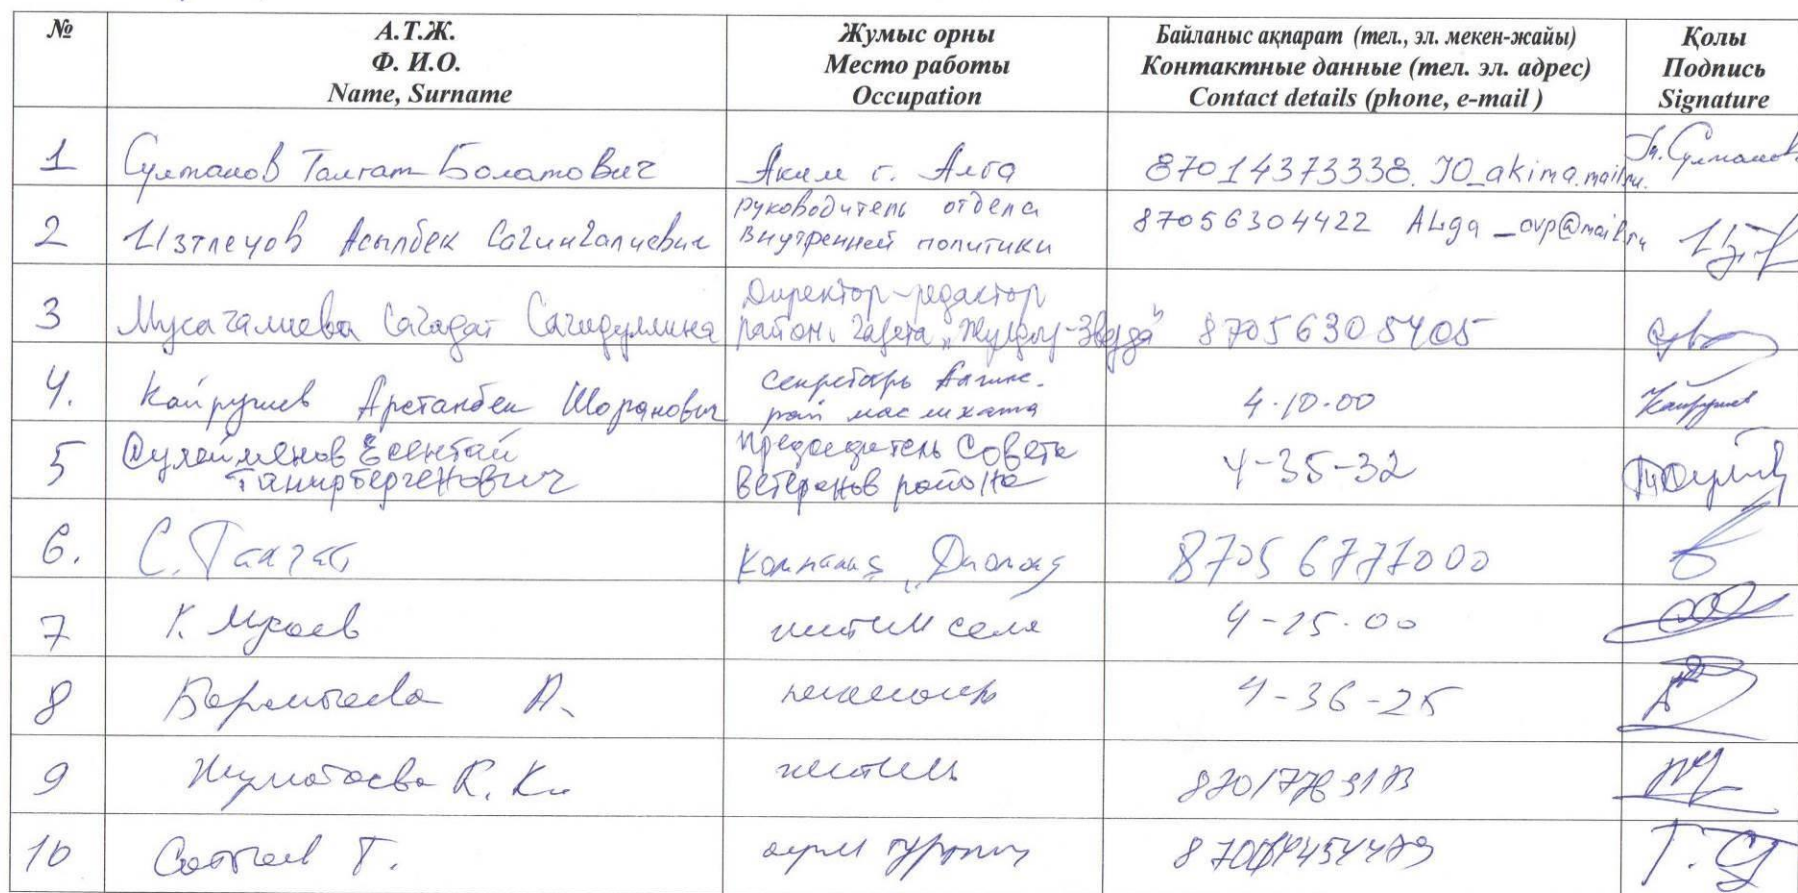 №
А.Т.Ж.
Ф. И.О.
Name, Surname
Жумыс орны
Место работы
Occupation
Байланыс ақпарат (тел., эл. мекен-жайы)
Контактные данные (тел. эл. адрес)
Contact details (phone, e-mail )
Қолы
Подпись
Signature
1 Султанов Талгат Болатович Аким г. Алга 87014373338. JO_akima.mail.ru. Султанов
2 Изтлеуов Асылбек Сагингалиевич
руководитель отдела
внутренней политики
87056304422 ALga_ovp@mail.ru
3 Мусагалиева Сагадат
Директор-редактор
район. газета „Жулдыз-Звезда"
87056305405
4. Кайрушев Арстанбек Шоранович
секретарь
рай маслихата
4-10-00 Кайрушев
5 Сулейменов Есентай
Танирбергенович
Председатель Совета
Ветеранов района
4-35-32
6. С. Талгат Компания 87056777000
7 К. Мусаев житель села 4-25-00
8 А. пенсионер 4-36-25
9 житель
10 Т.